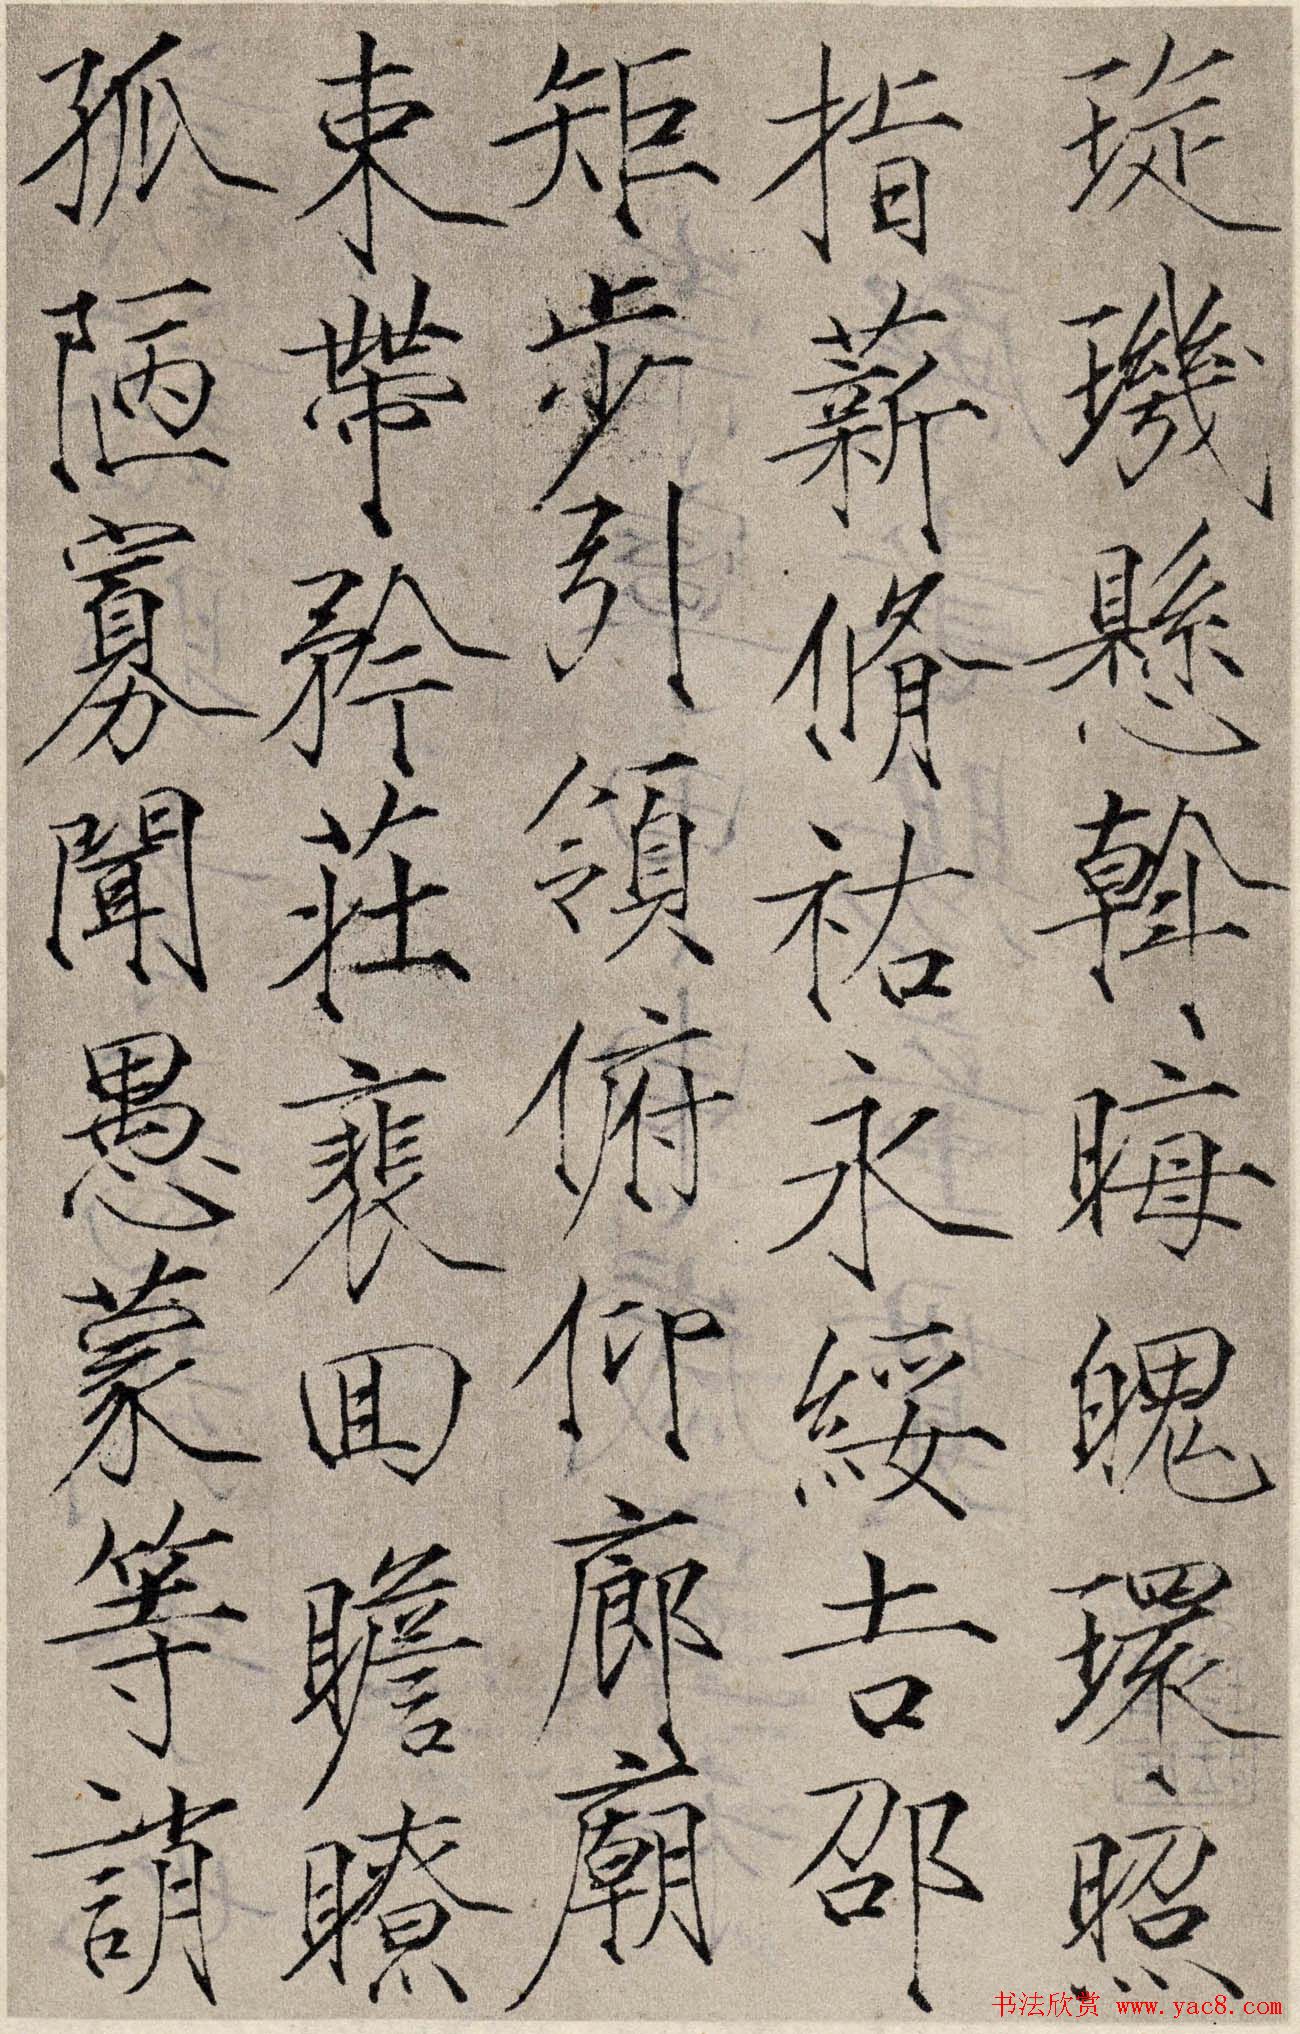 琁璣懸斡晦魄環照
指薪脩祐永綏吉邵
矩步引領俯仰廊廟
束帶矜莊裵回瞻瞭
孤陋寡聞愚蒙等誚
书法欣赏 www.yac8.com